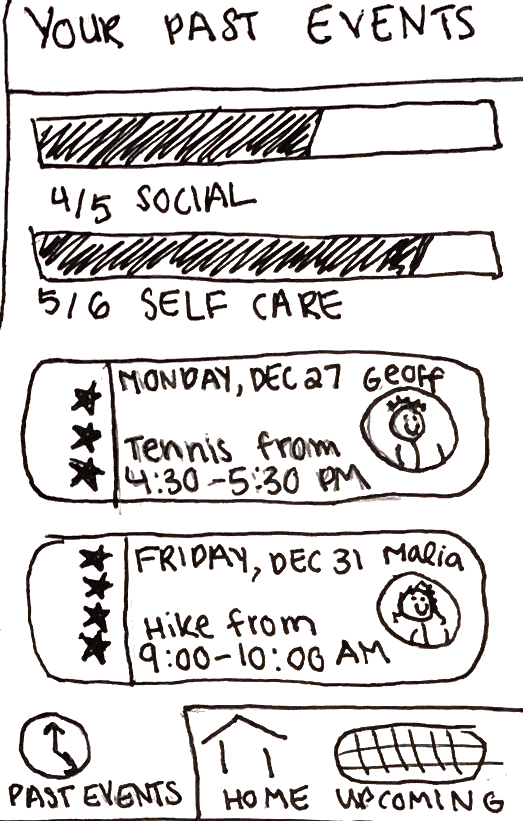 YOUR PAST EVENTS
4/5 SOCIAL
5/6 SELF CARE
MONDAY, DEC 27 Geoff
Tennis from
4:30-5:30 PM
FRIDAY, DEC 31 Malia
Hike from
9:00-10:00 AM
PAST EVENTS HOME UPCOMING